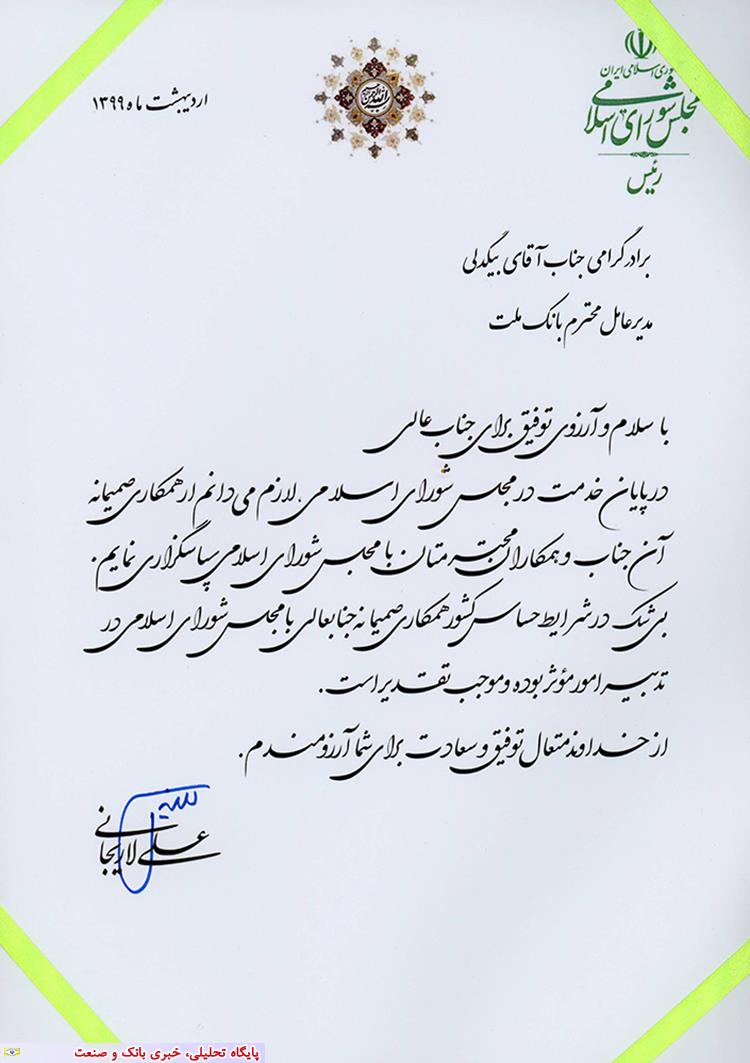 جمهوری اسلامی ایران
مجلس شورای اسلامی
رئیس
اردیبهشت ماه ۱۳۹۹
برادر گرامی جناب آقای بیگدلی
مدیرعامل محترم بانک ملت
با سلام و آرزوی توفیق برای جناب عالی
در پایان خدمت در مجلس شورای اسلامی لازم می دانم از همکاری صمیمانه
آن جناب و همکاران محترمتان با مجلس شورای اسلامی سپاسگزاری نمایم.
بی شک در شرایط حساس کشور همکاری صمیمانه جنابعالی با مجلس شورای اسلامی در
تدبیر امور مؤثر بوده و موجب تقدیر است.
از خداوند متعال توفیق و سعادت برای شما آرزومندم.
علی لاریجانی
پایگاه تحلیلی، خبری بانک و صنعت